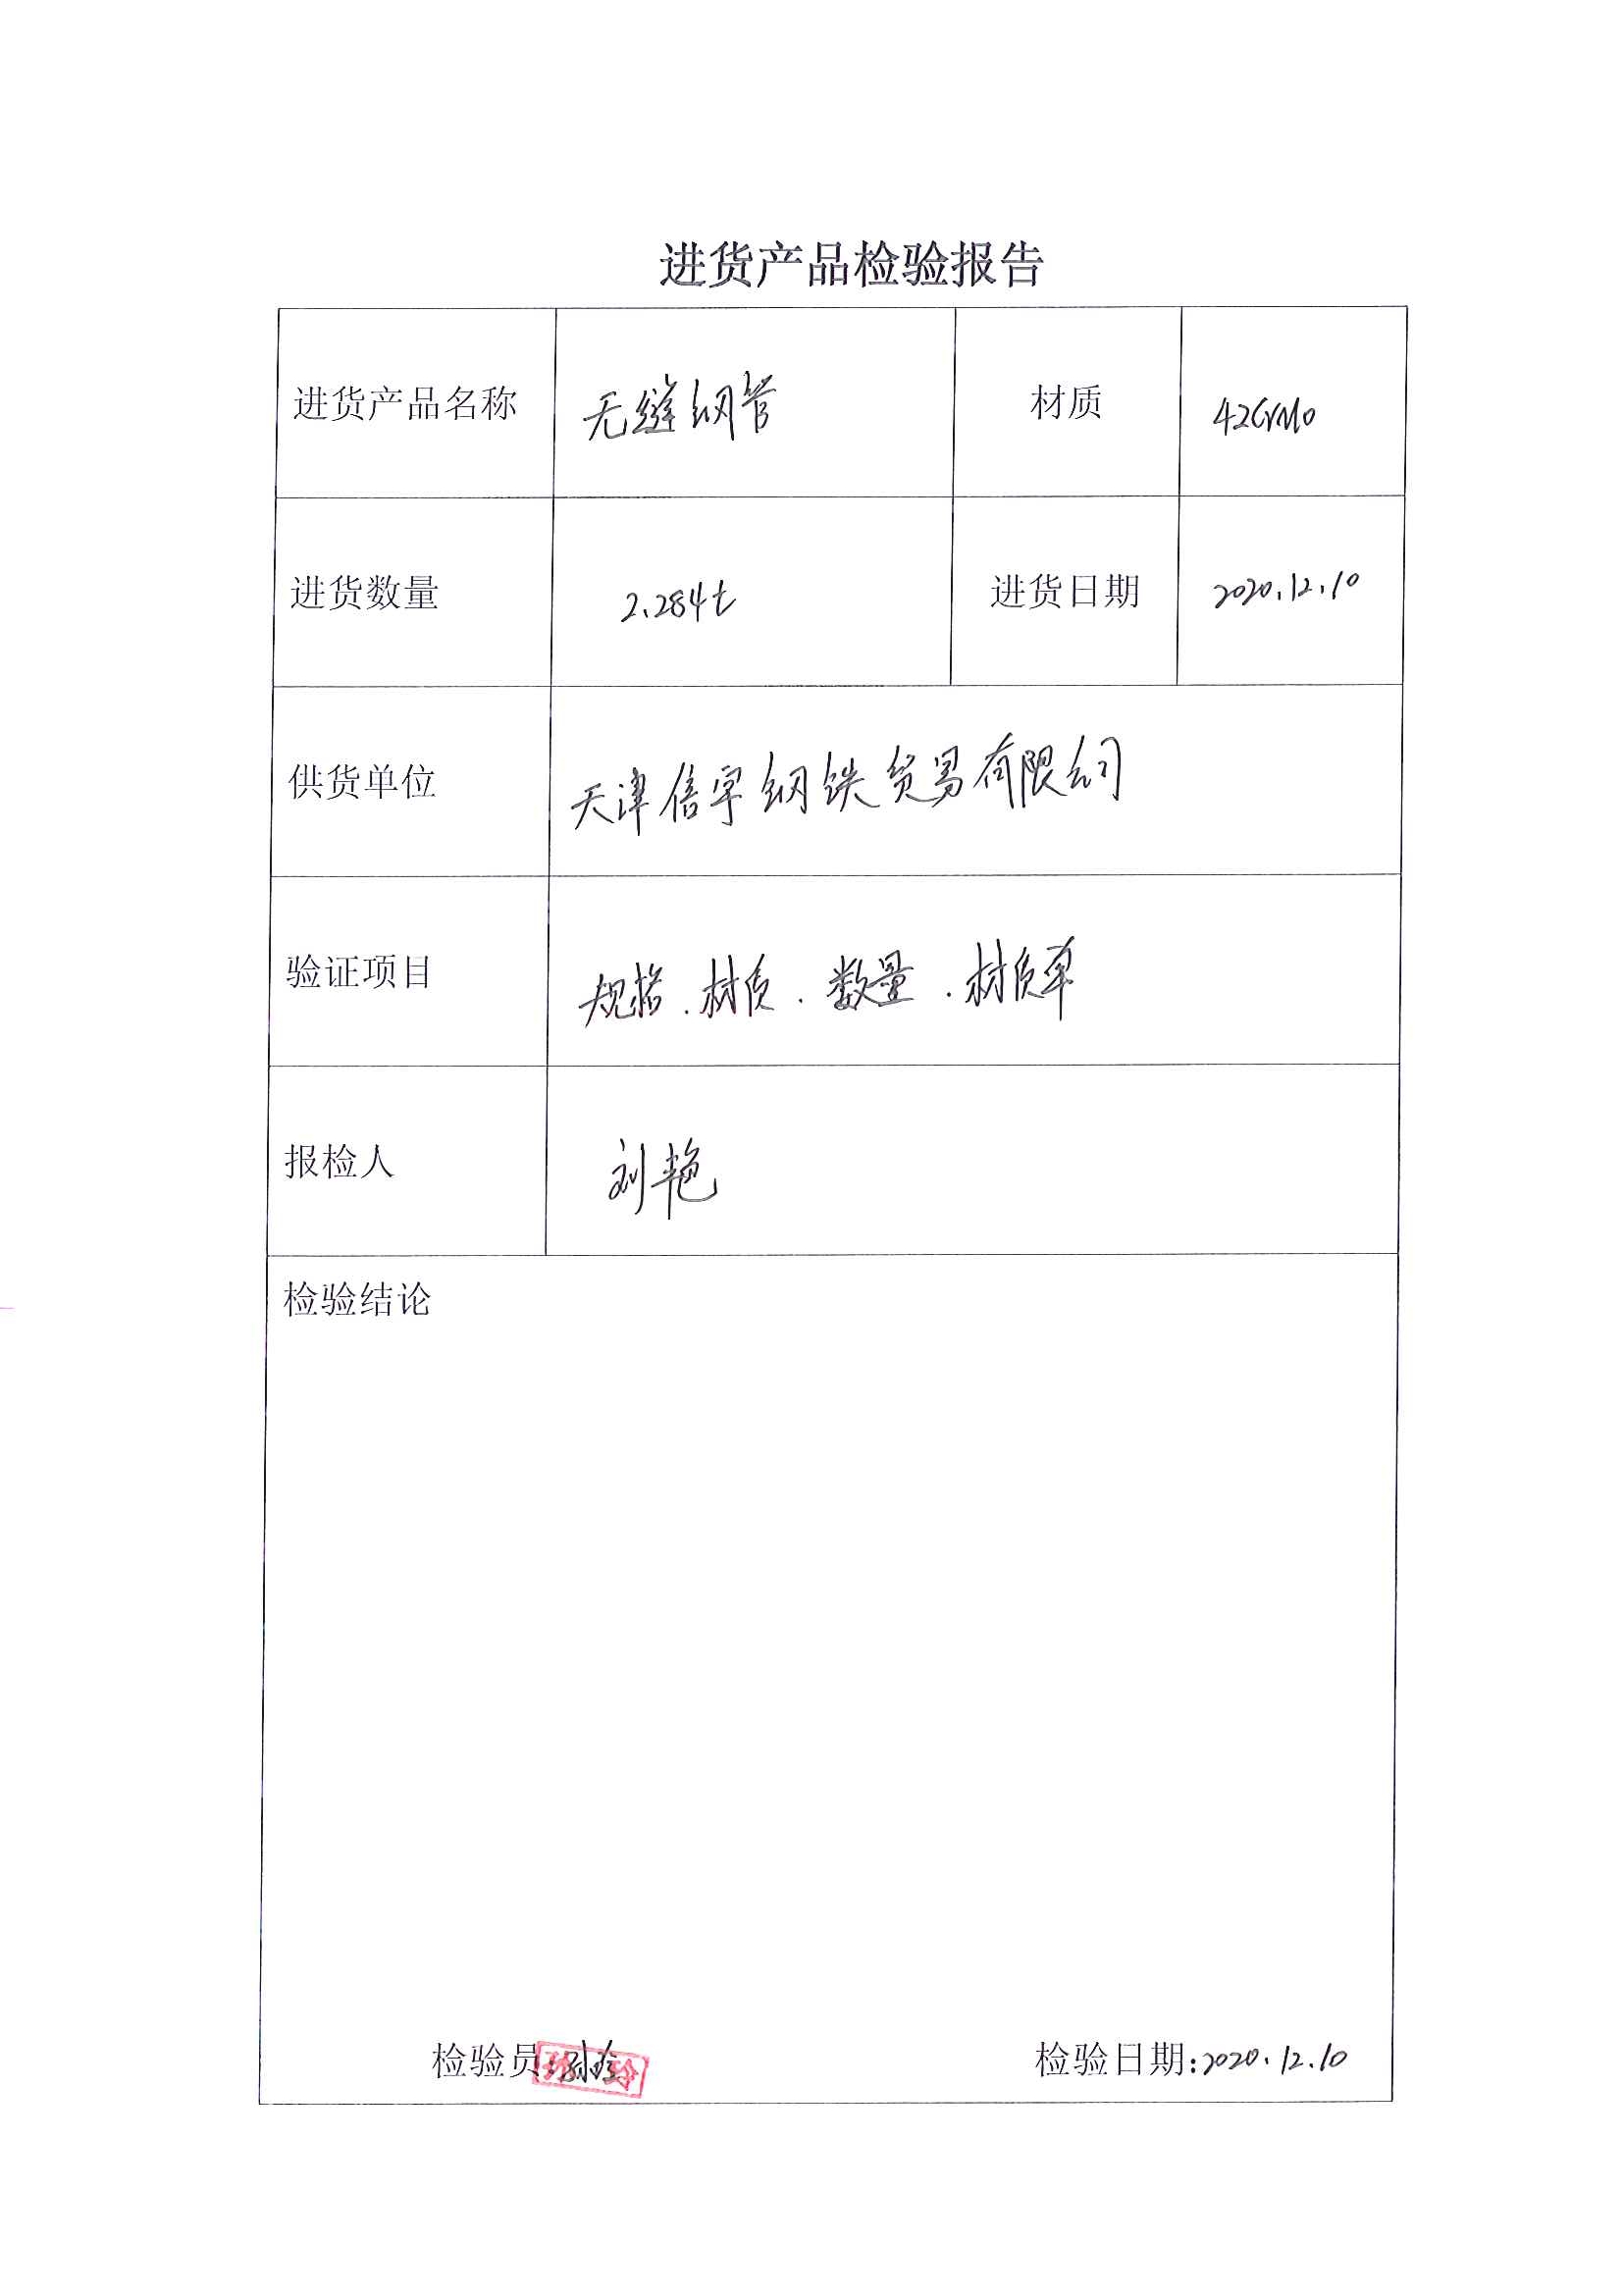 进货产品检验报告
进货产品名称 无缝钢管 材质 42CrMo
进货数量 2.284t 进货日期 2020.12.10
供货单位 天津信宇钢铁贸易有限公司
验证项目 规格.材质.数量.材质单
报检人 刘艳
检验结论
检验员: 孙玲 检验日期:2020.12.10